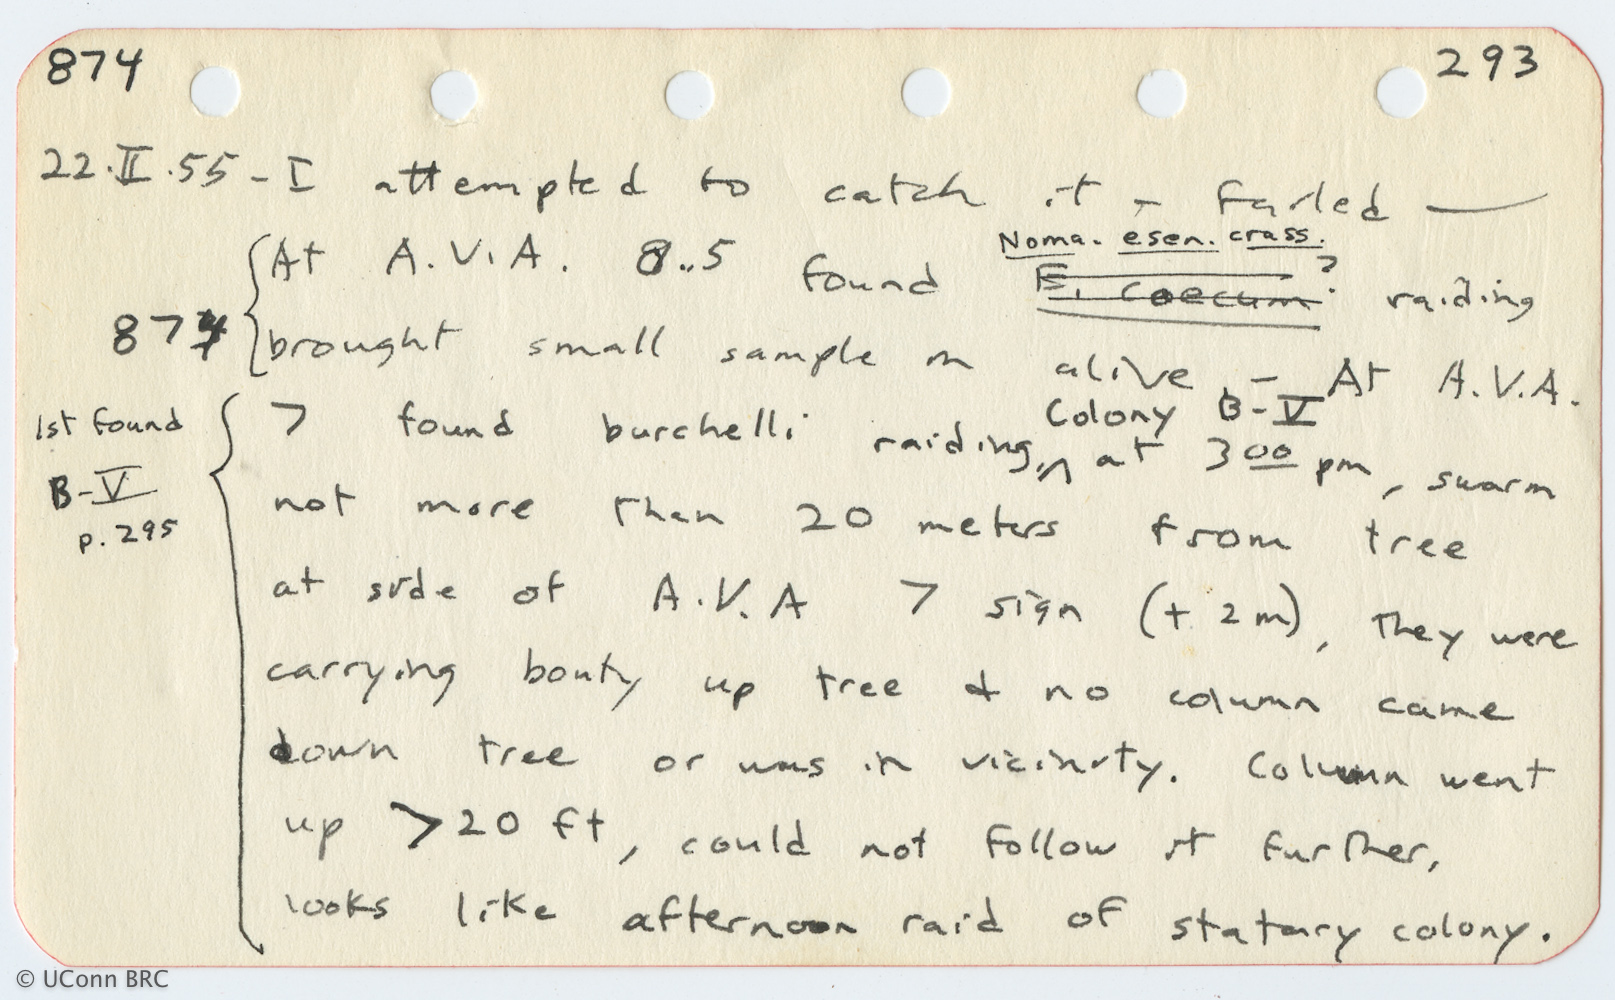 874 293
22.II.55 - I attempted to catch it - failed —
Noma. esen. crass.
At A.V.A. 8.5 found E. coecum? raiding
874 brought small sample in alive. - At A.V.A.
1st found Colony B-V
7 found burchelli raiding, at 3 00 pm, swarm
B-V
not more than 20 meters from tree
p. 295
at side of A.V.A 7 sign (+ 2m), They were
carrying booty up tree & no column came
down tree or was in vicinity. Column went
up >20 ft, could not follow it further,
looks like afternoon raid of statary colony.
© UConn BRC